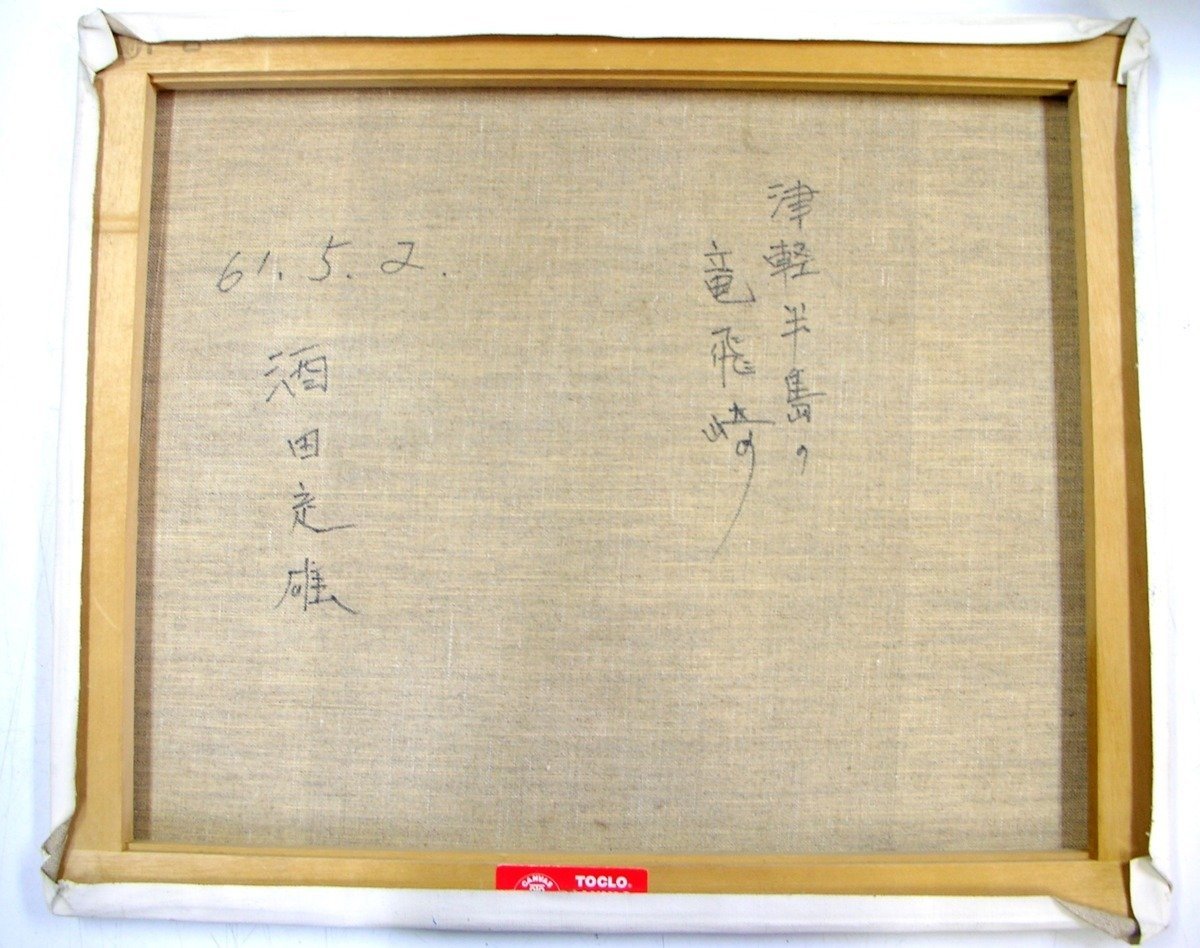 津軽半島、
竜飛崎
61.5.2.
酒田定雄
CANVAS
TOCLO